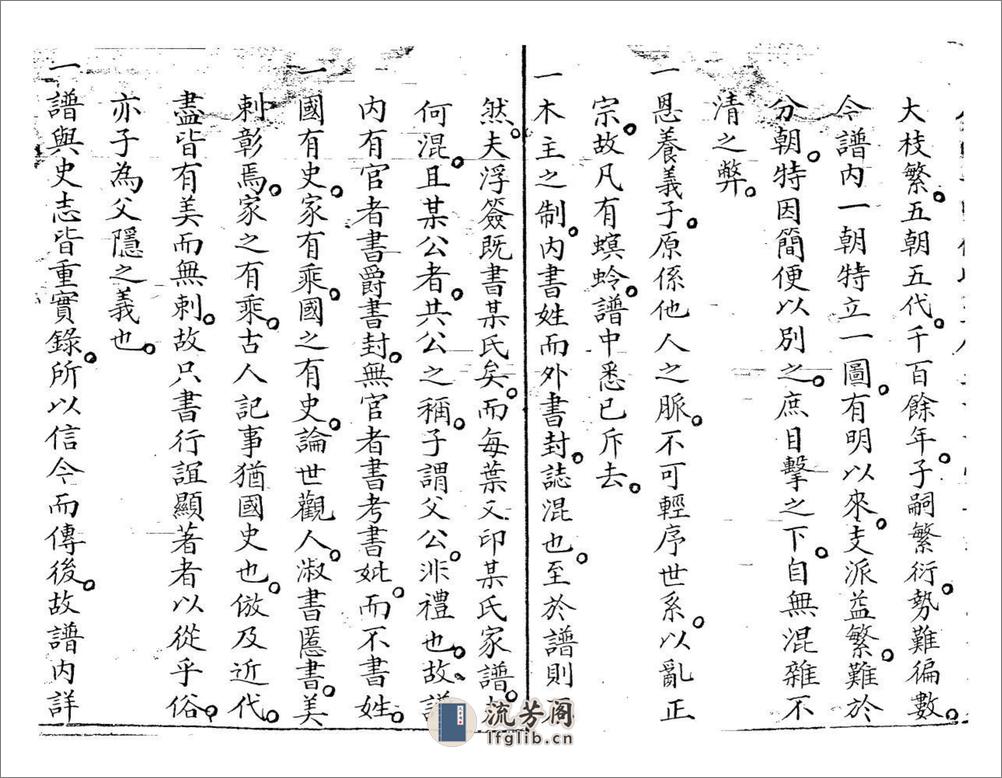 大枝繁。五朝五代。千百餘年。子嗣繁衍。勢難徧數。
今譜内一朝特立一圖。有明以來。支派益繁。難於
分朝。特因簡便以別之。庶目擊之下。自無混雜不
清之弊。
一恩養義子。原係他人之脈。不可輕序世系。以亂正
宗。故凡有螟蛉。譜中悉已斥去。
一木主之制。内書姓而外書封。誌混也。至於譜則
然。夫浮簽既書某氏矣。而每葉又印某氏家譜。
何混。且某公者。共公之稱。子謂父公。非禮也。故
内有官者書爵書封。無官者書考書妣。而不書姓。
一國有史。家有乘。國之有史。論世觀人。淑書慝書。美
刺彰焉。家之有乘。古人記事猶國史也。倣及近代。
盡皆有美而無刺。故只書行誼顯著者以從乎俗。
亦子為父隱之義也。
一譜與史志皆重實錄。所以信今而傳後。故譜内詳
流芳阁
lfglib.cn